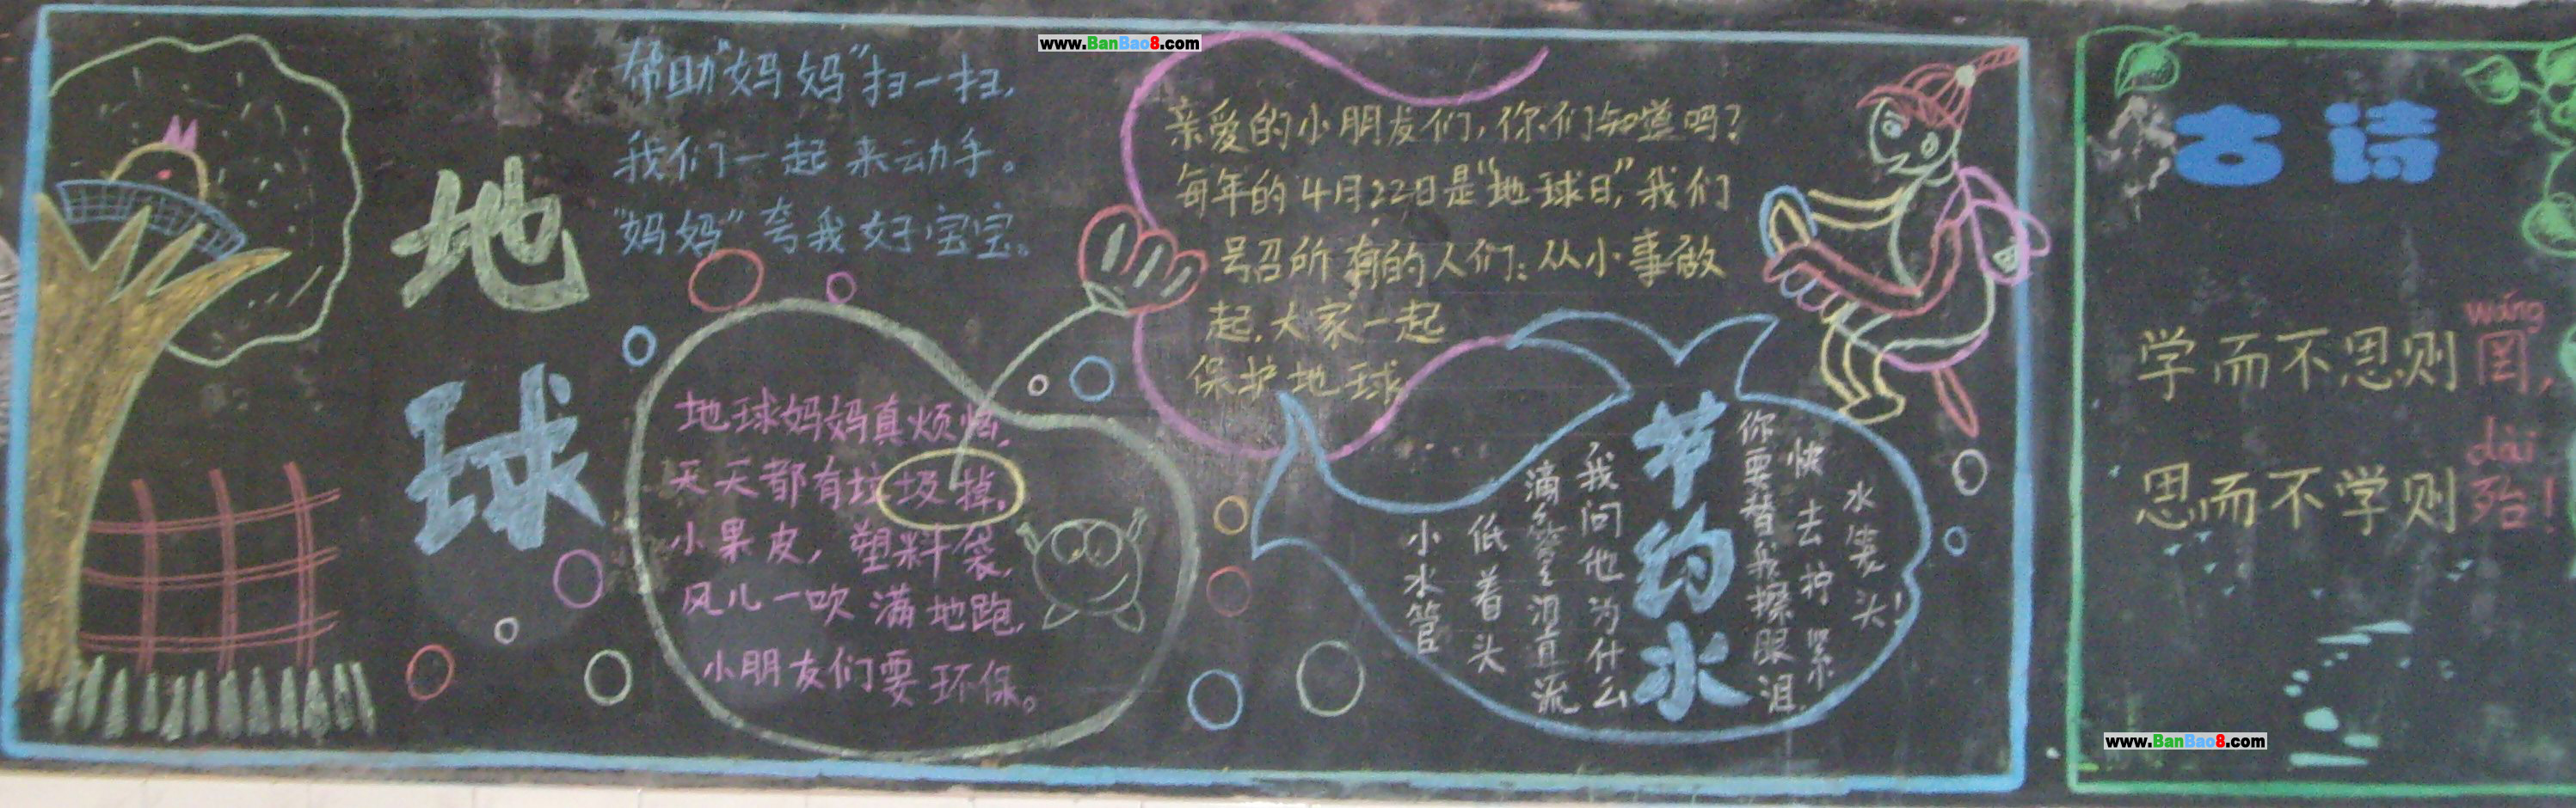 www.BanBao8.com
地球
帮助“妈妈”扫一扫,
我们一起来动手。
“妈妈”夸我好宝宝。
地球妈妈真烦恼,
天天都有垃圾掉,
小果皮,塑料袋,
风儿一吹满地跑,
小朋友们要环保。
亲爱的小朋友们,你们知道吗?
每年的4月22日是“地球日”,我们
号召所有的人们:从小事做
起,大家一起
保护地球
节约水
小水管
低着头
滴答滴答泪直流
我问他为什么
你要替我擦眼泪.
快去拧紧
水龙头!
古诗
学而不思则罔,
wǎng
思而不学则殆!
dài
www.BanBao8.com